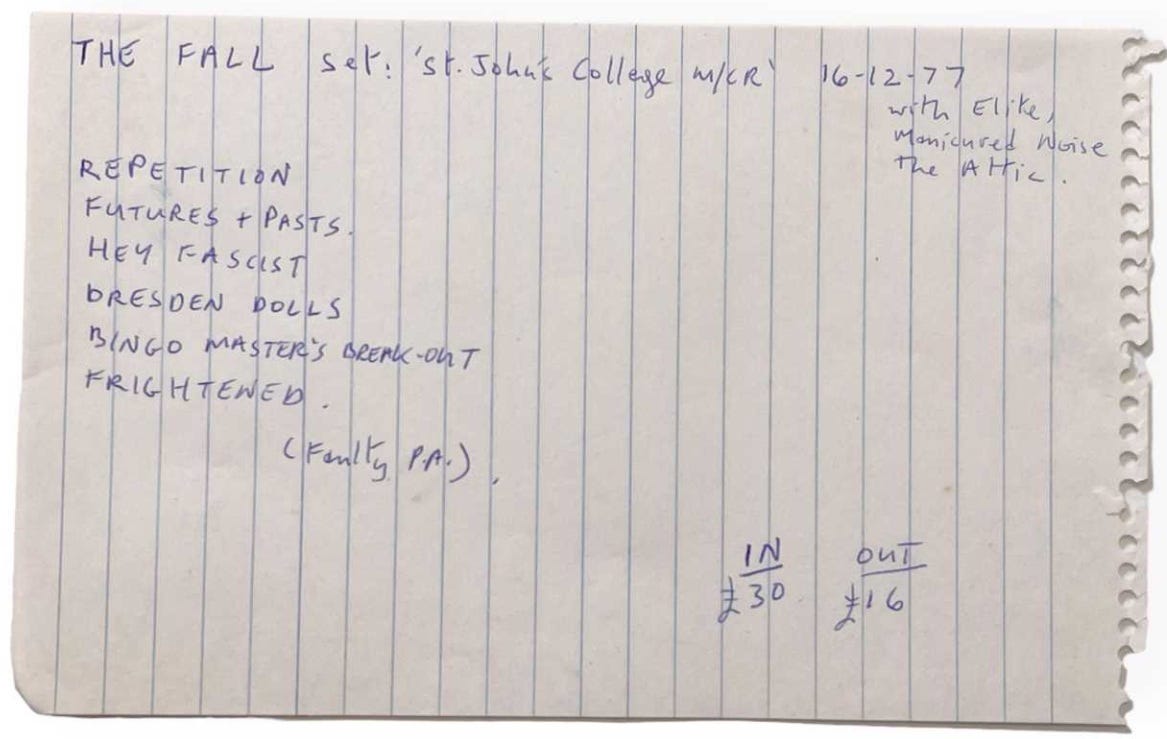 THE FALL set: 'St. John's College M/CR' 16-12-77
with Elite,
Manicured Noise
The Attic.
REPETITION
FUTURES + PASTS.
HEY FASCIST
DRESDEN DOLLS
BINGO MASTER'S BREAK-OUT
FRIGHTENED.
(Faulty P.A.).
IN OUT
£30 £16